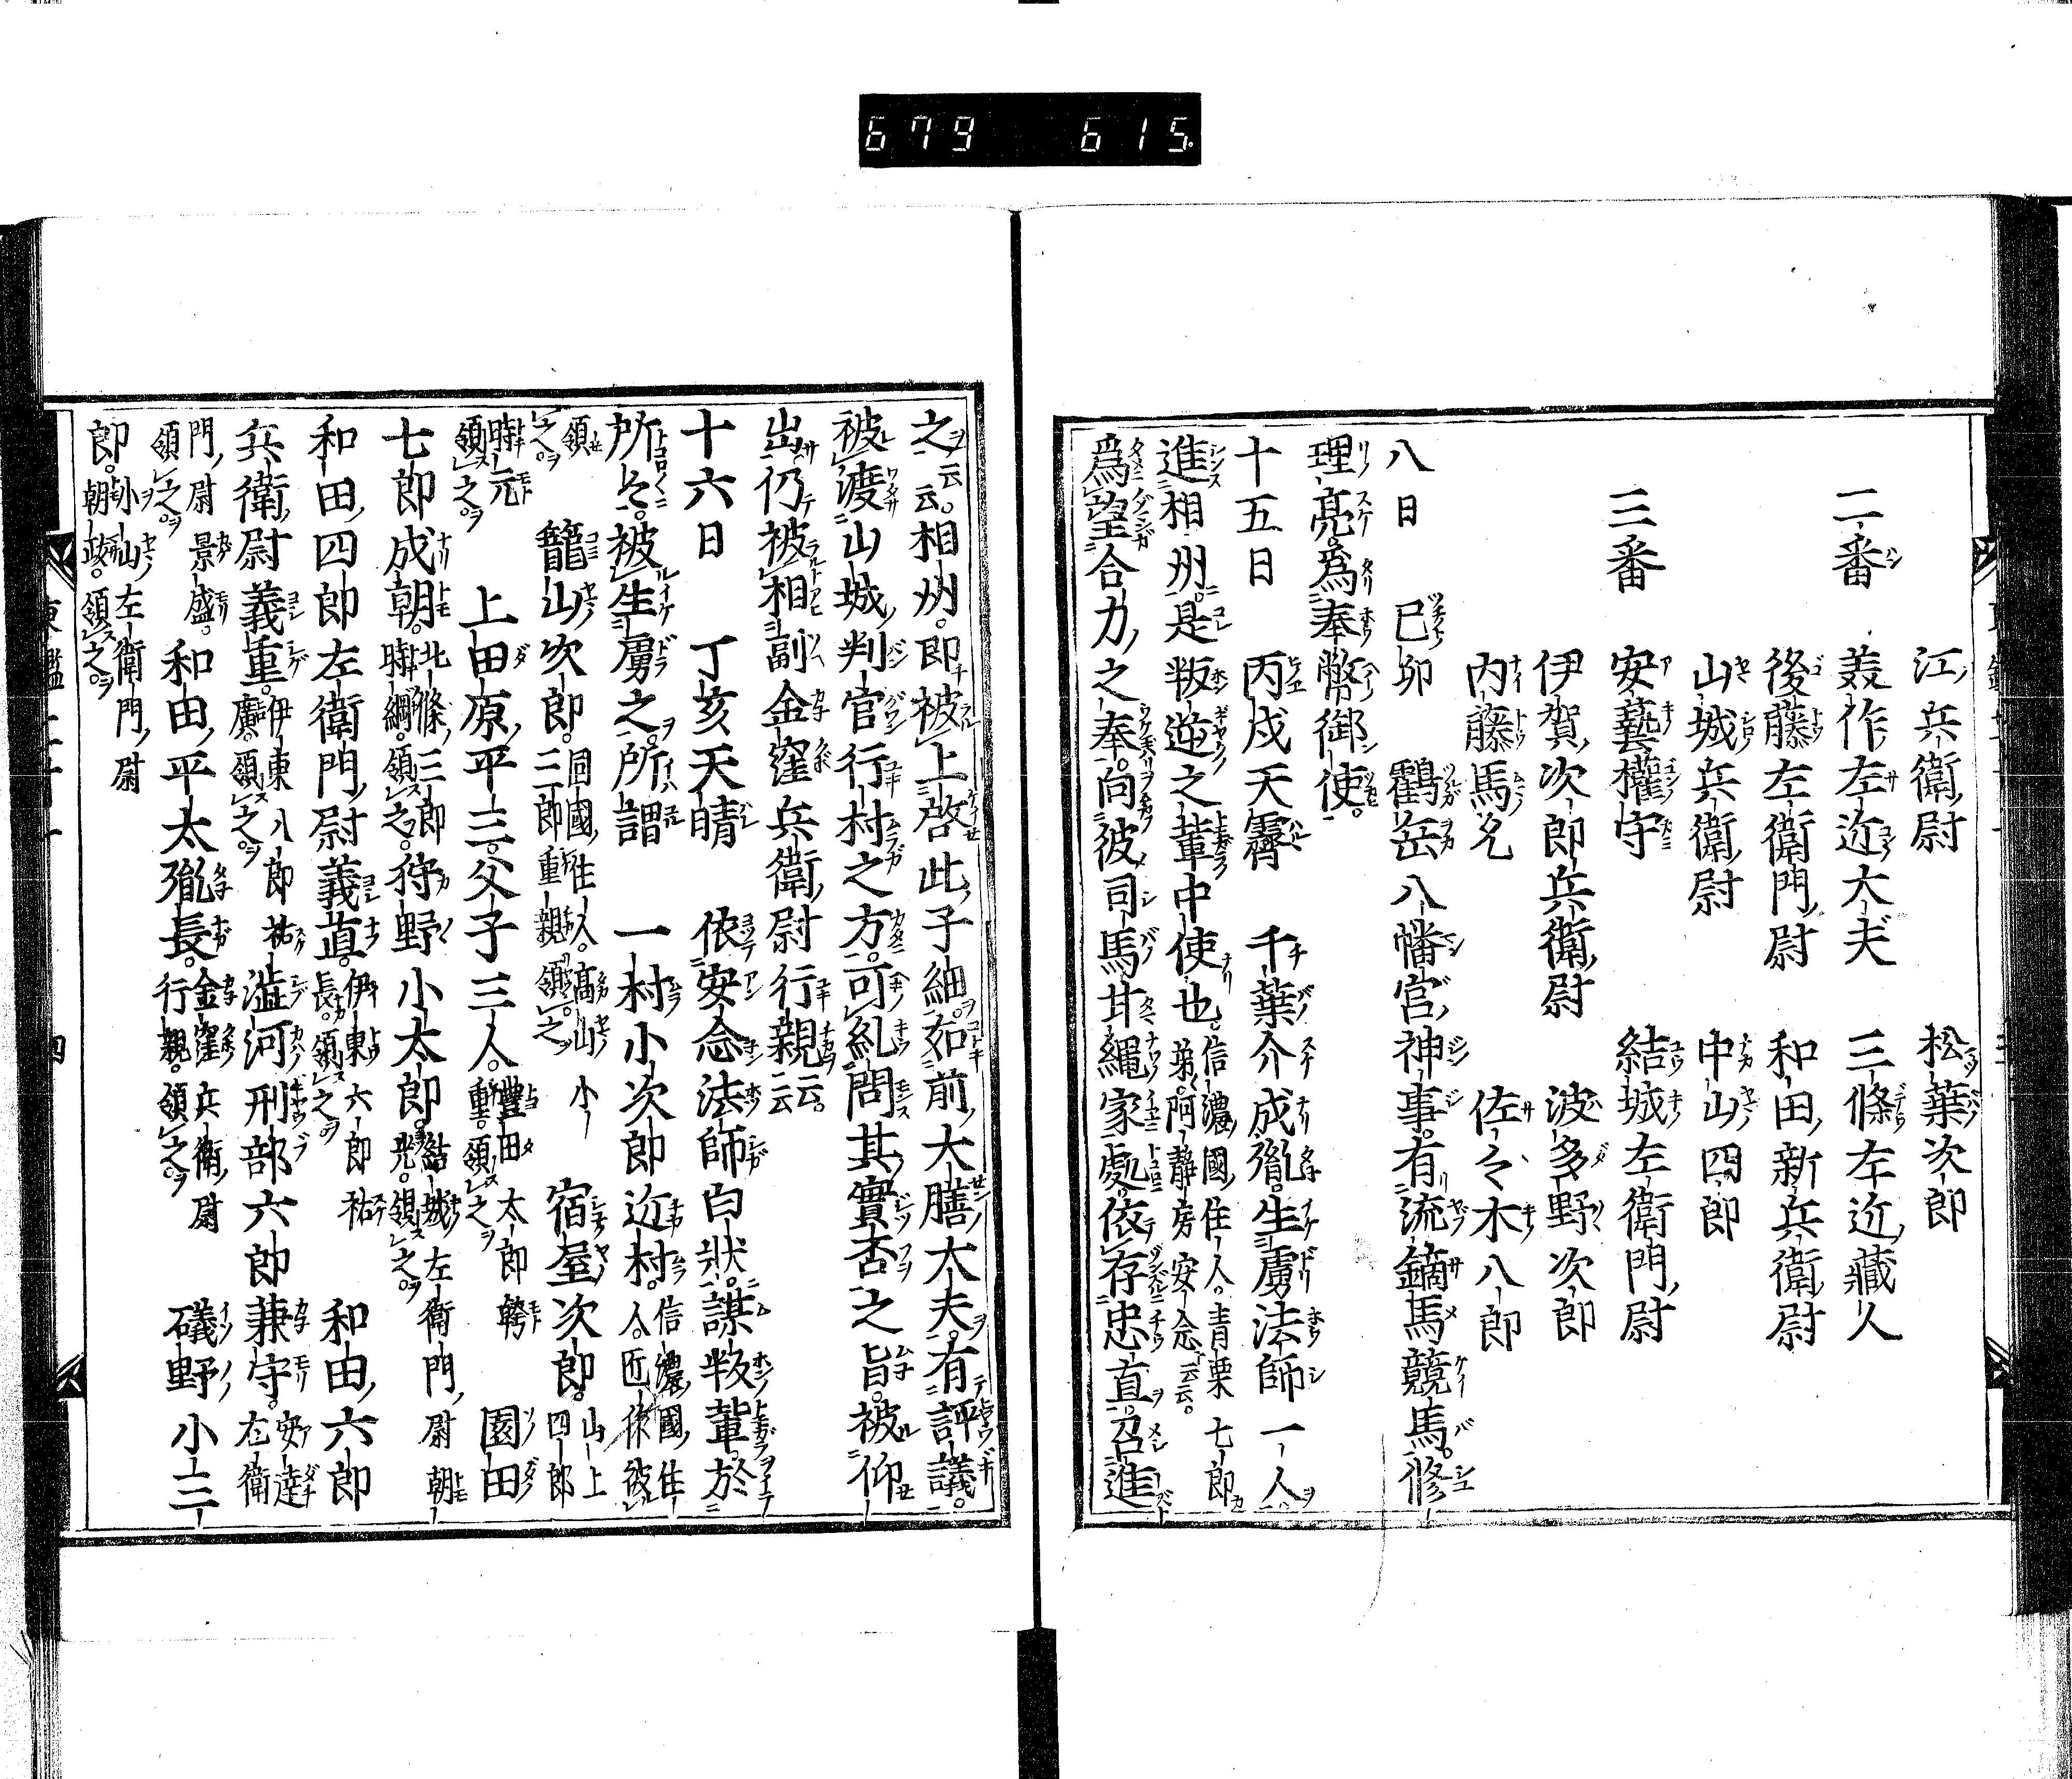 679 615
江兵衛尉 松葉次郎
二番 美作左近大夫 三條左近藏人
後藤左衛門尉 和田新兵衛尉
山城兵衛尉 中山四郎
三番 安藝權守 結城左衛門尉
伊賀次郎兵衛尉 波多野次郎
内藤馬允 佐々木八郎
八日 己卯 鶴岳八幡宮神事有流鏑馬競馬。修
理亮。為奉幣御使。
十五日 丙戌天霽 千葉介成胤。生虜法師一人
進相州。是叛逆之輩中使也。信濃國住人。青栗七郎弟。阿靜房安念云云。
為望合力之奉。向彼司馬甘繩家處。依存忠直。召進
之云云。相州。即被上啓此子細。如前大膳大夫。有評議。
被渡山城判官行村之方。可糺問其實否之旨。被仰
出。仍被相副金窪兵衛尉行親云云。
十六日 丁亥天晴 依安念法師白狀。謀叛輩。於
所々。被生虜之。所謂 一村小次郎近村。信濃國住人。匠作被
領之。 籠山次郎。同國住人。高山小三郎重親領之。 宿屋次郎。山上四郎
時元領之。 上田原平三父子三人。豐田太郎幹重。領之 園田
七郎成朝。北條三郎時綱。領之。狩野小太郎。結城左衛門尉朝光。領之。
和田四郎左衛門尉義直。伊東六郎祐長。領之。 和田六郎
兵衛尉義重。伊東八郎祐廣。領之。 澁河刑部六郎兼守。安達左衛
門尉景盛。領之。 和田平太胤長。金窪兵衛尉行親。領之。 礒野小三
郎。小山左衛門尉朝政。領之。
四